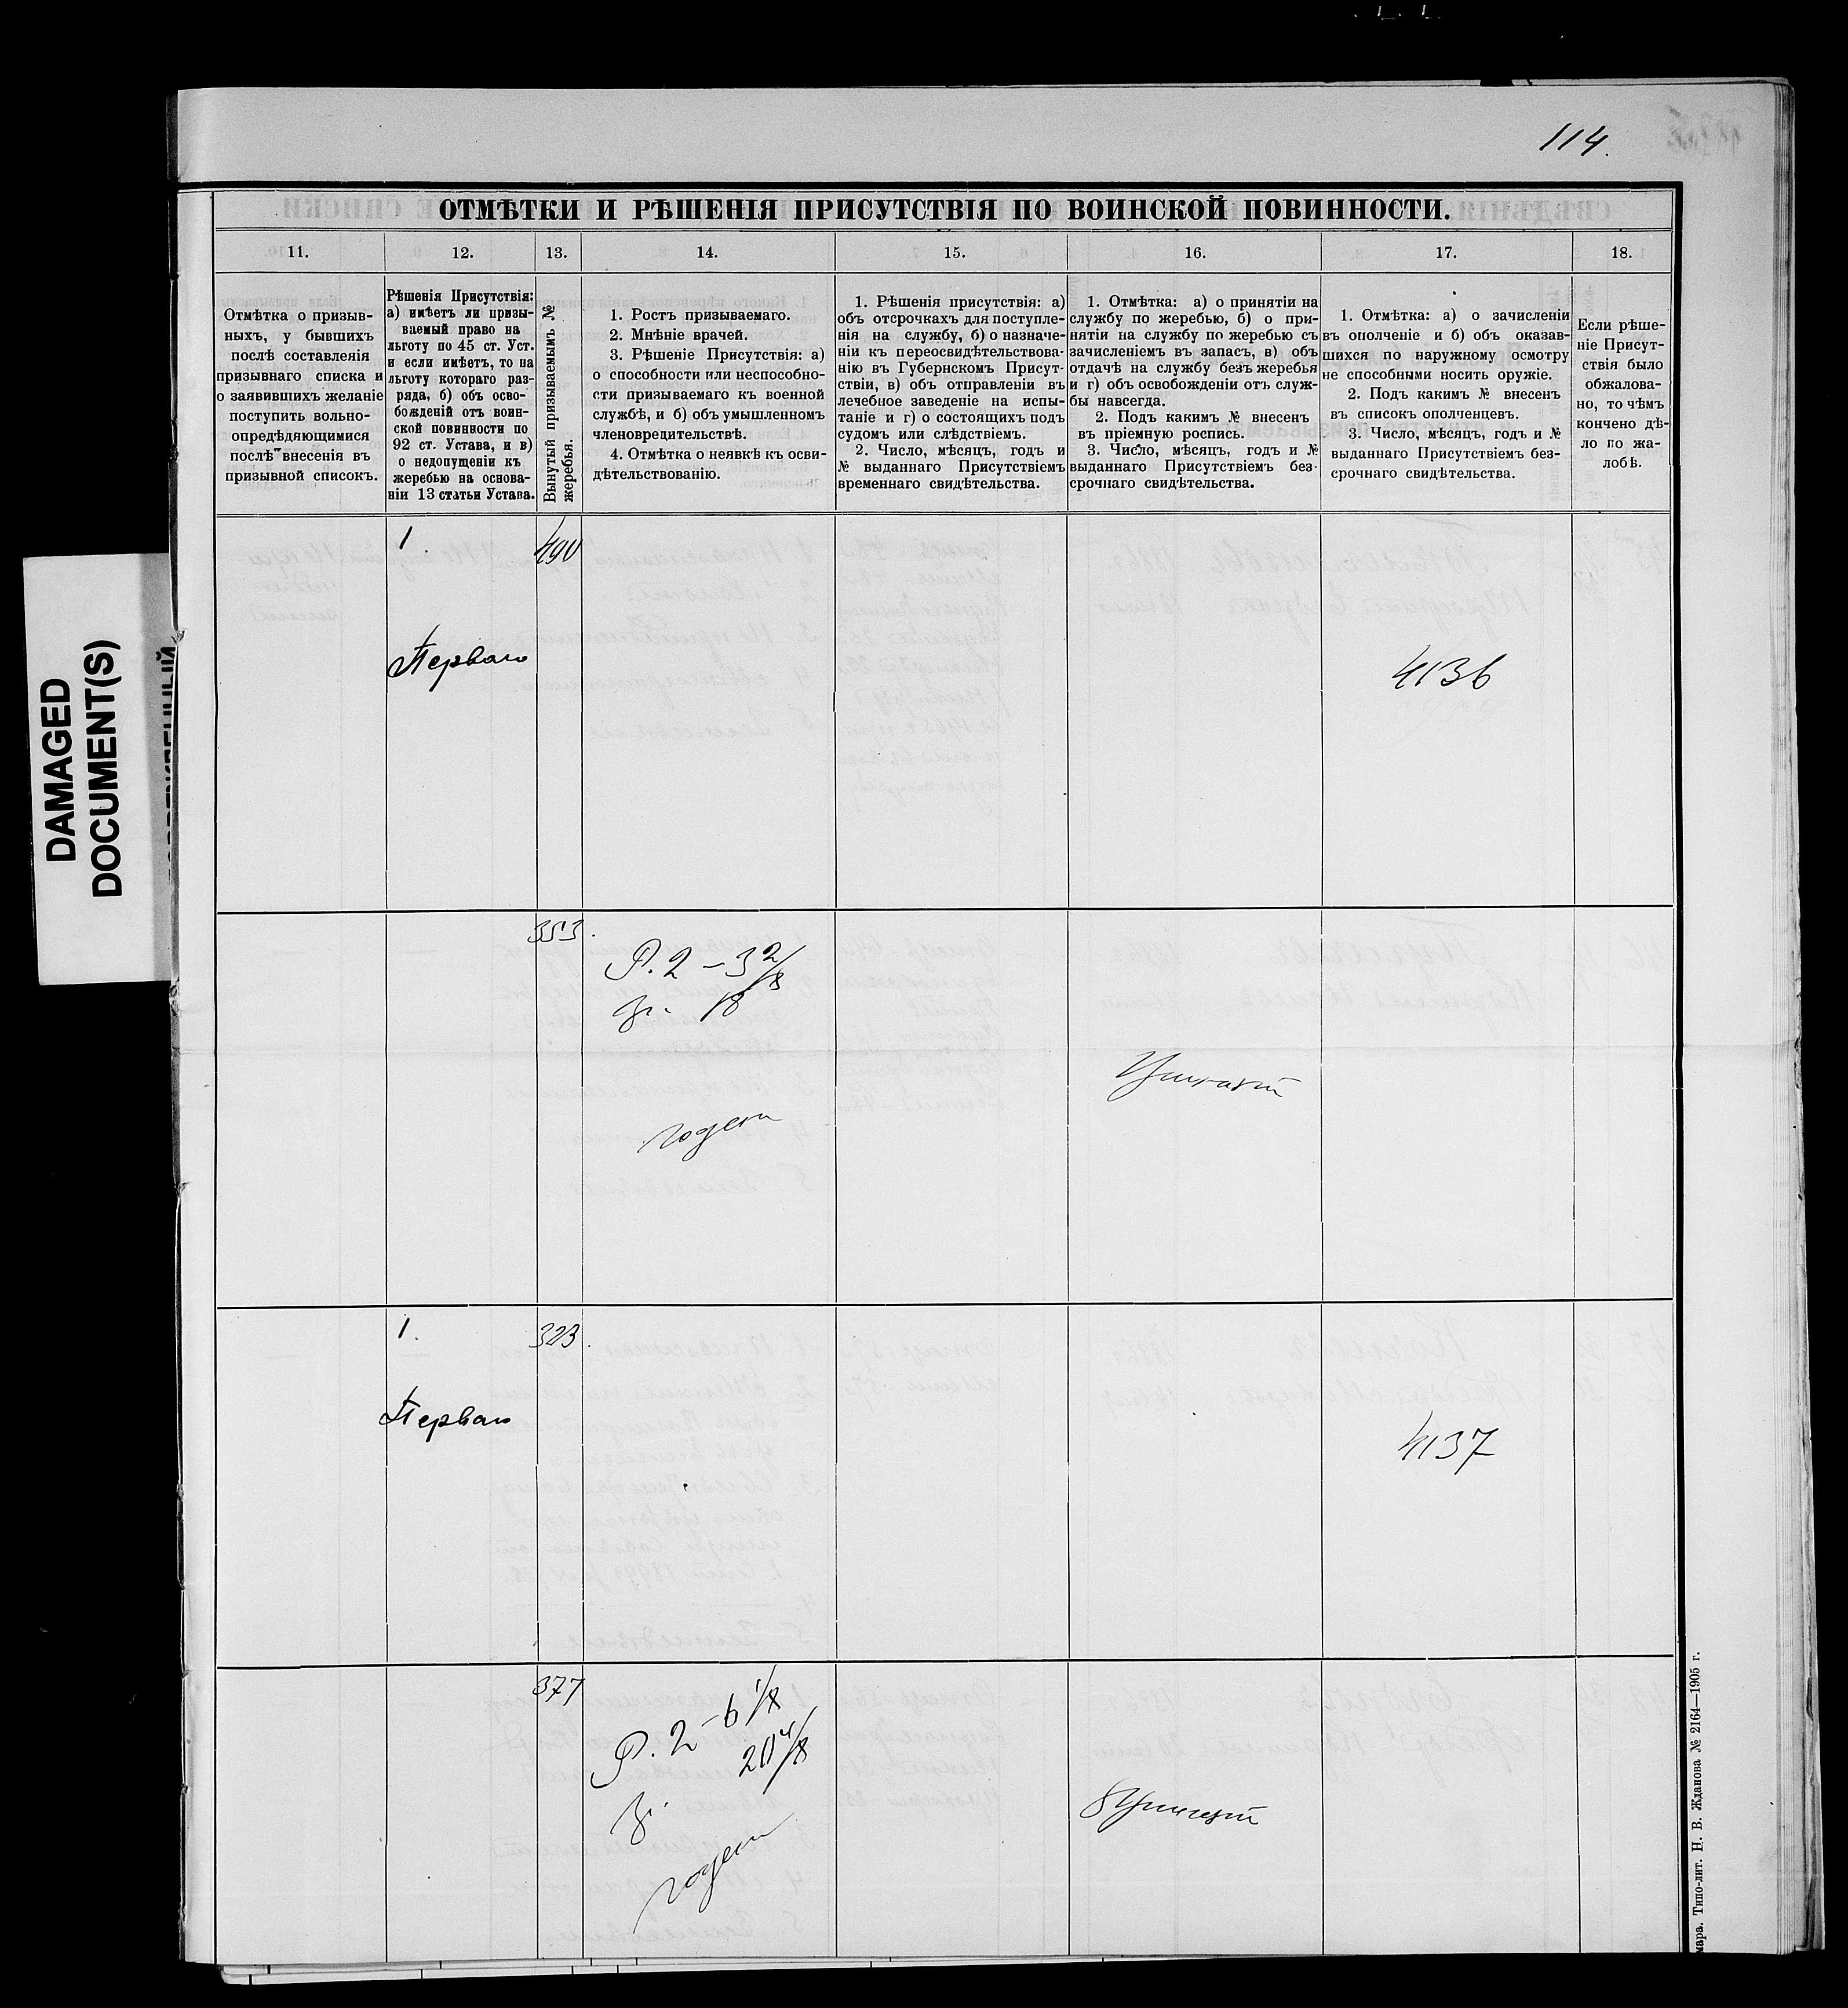 114.
ОТМѢТКИ И РѢШЕНІЯ ПРИСУТСТВІЯ ПО ВОИНСКОЙ ПОВИННОСТИ.
11. 12. 13. 14. 15. 16. 17. 18.
Отмѣтка о призыв-
ныхъ, у бывшихъ
послѣ составленія
призывнаго списка и
о заявившихъ желаніе
поступить вольно-
опредѣдяющимися
послѣ внесенія въ
призывной списокъ.
Рѣшенія Присутствія:
а) имѣетъ ли призы-
ваемый право на
льготу по 45 ст. Уст.
и если имѣетъ, то на
льготу котораго раз-
ряда, б) объ осво-
божденій отъ воин-
ской повинности по
92 ст. Устава, и в)
о недопущеніи къ
жеребью на основа-
ніи 13 статьи Устава.
Вынутый призываемымъ №
жеребья.
1. Ростъ призываемаго.
2. Мнѣніе врачей.
3. Рѣшеніе Присутствія: а)
о способности или неспособно-
сти призываемаго къ военной
службѣ, и б) объ умышленномъ
членовредительствѣ.
4. Отмѣтка о неявкѣ къ осви-
дѣтельствованію.
1. Рѣшенія присутствія: а)
объ отсрочкахъ для поступле-
нія на службу, б) о назначе-
ніи къ переосвидѣтельствова-
нію въ Губернскомъ Присут-
ствіи, в) объ отправленіи въ
лечебное заведеніе на испы-
таніе и г) о состоящихъ подъ
судомъ или слѣдствіемъ.
2. Число, мѣсяцъ, годъ и
№ выданнаго Присутствіемъ
временнаго свидѣтельства.
1. Отмѣтка: а) о принятіи на
службу по жеребью, б) о при-
нятіи на службу по жеребью съ
зачисленіемъ въ запасъ, в) объ
отдачѣ на службу безъ жеребья
и г) объ освобожденіи отъ служ-
бы навсегда.
2. Подъ какимъ № внесенъ
въ пріемную роспись.
3. Число, мѣсяцъ, годъ и №
выданнаго Присутствіемъ без-
срочнаго свидѣтельства.
1. Отмѣтка: а) о зачисленіи
въ ополченіе и б) объ оказав-
шихся по наружному осмотру
не способными носить оружіе.
2. Подъ какимъ № внесенъ
въ списокъ ополченцевъ.
3. Число, мѣсяцъ, годъ и №
выданнаго Присутствіемъ без-
срочнаго свидѣтельства.
Если рѣше-
ніе Присут-
ствія было
обжалова-
но, то чѣмъ
кончено дѣ-
ло по жа-
лобѣ.
1. 490
Перваго
4136
353.
Р. 2 – 3 2/8
Годенъ
1. 323.
Перваго
4137
377
Р. 2 – 6 1/8
20 4/8
Годенъ
мара. Типо-лит. Н. В. Жданова № 2164—1905 г.
DAMAGED
DOCUMENT(S)